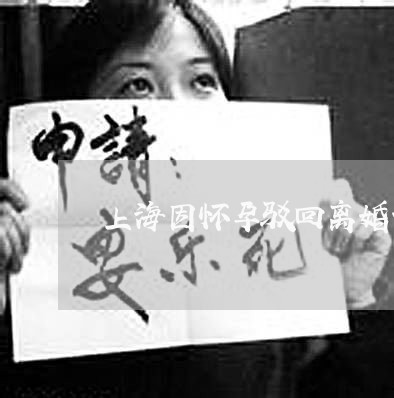 申請：
上海因怀孕驳回离婚
安乐死